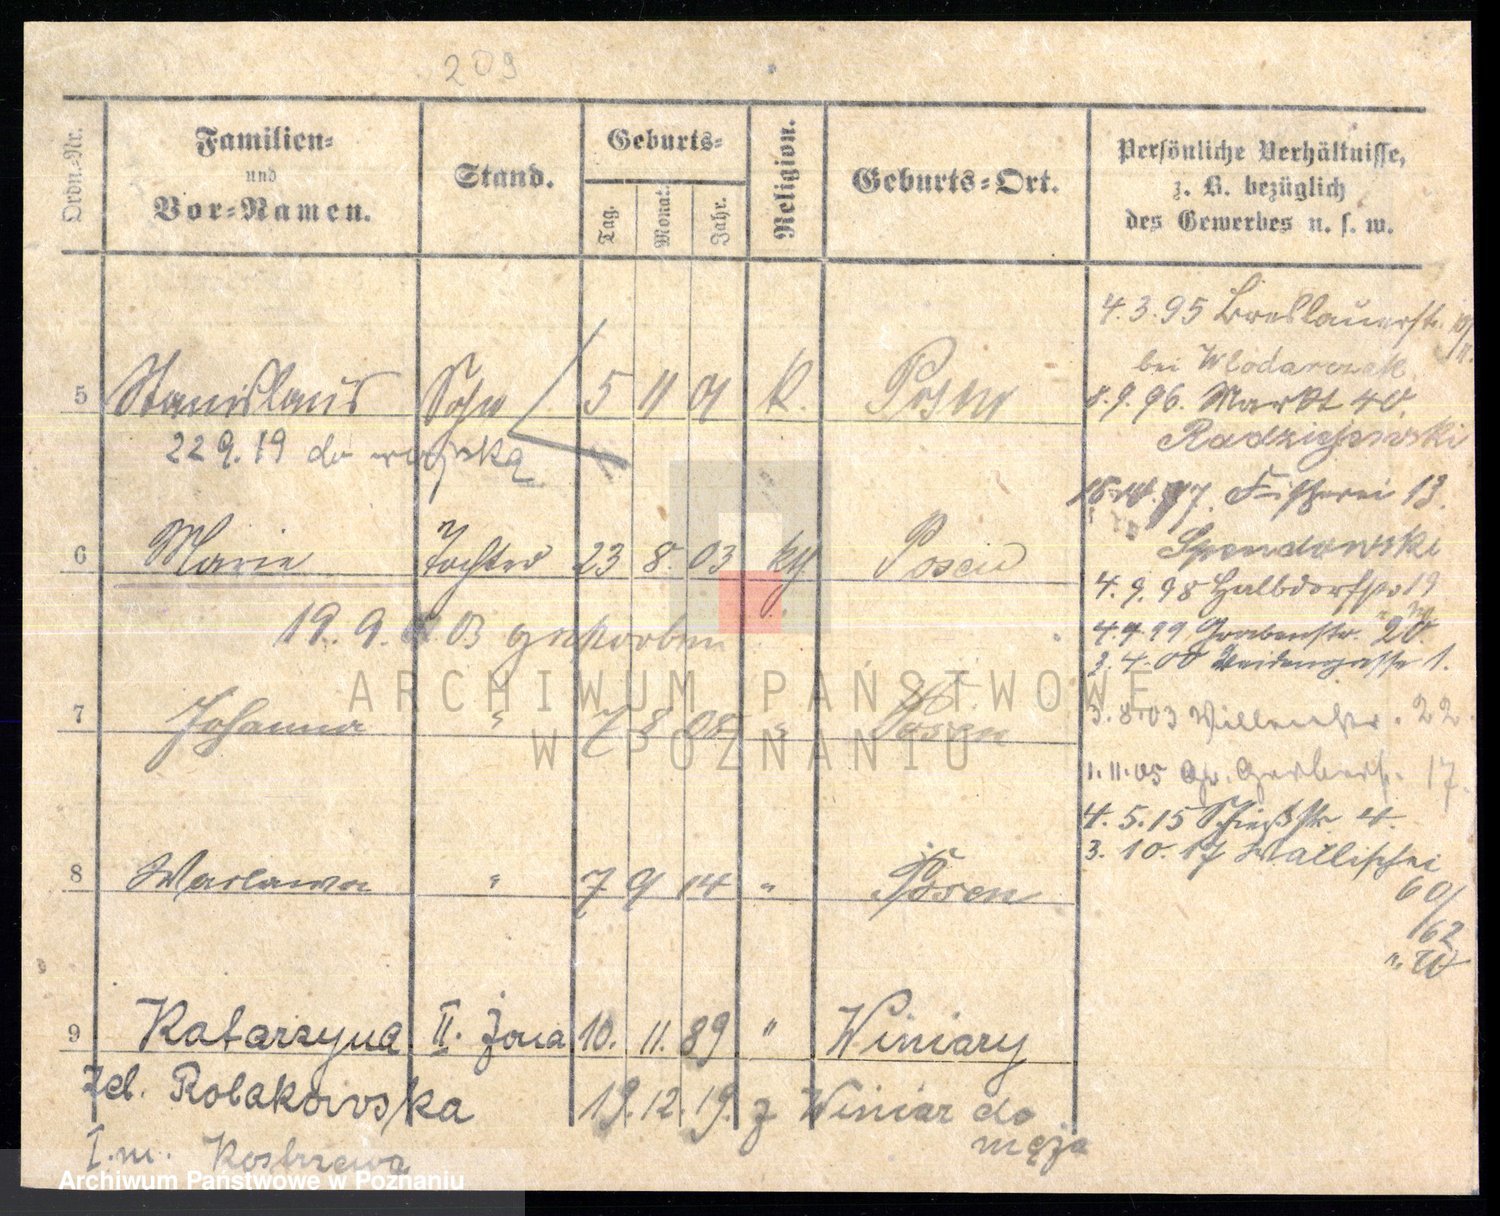 209
Ordn.-Nr.
Familien-
und
Vor-Namen.
Stand.
Geburts-
Tag.
Monat.
Jahr.
Religion.
Geburts-Ort.
Persönliche Verhältnisse,
z. B. bezüglich
des Gewerbes u. s. w.
5 Stanislaus Sohn 5 11 01 K. Posen
22 9. 19 do wojska
6 Marie Tochter 23 8. 03 Posen
19. 9. 03 gestorben
7 Johanna " 7 8 " Posen
8 Waclawa " 7 9 14 " Posen
9 Katarzyna II. żona 10. 11. 89 " Winiary
zd. Rolakowska 19. 12. 19. z Winiar do
męża
I. m. Kostrzewa
4. 3. 95 Breslauerstr.
bei Wlodarczak
8. 9. 96. Markt 40.
Fischerei 13.
Spendowski
4. 9. 98 Halbdorfstr 19
4. 4. 99 Grabenstr. 20
3. 4. 00 Weidengasse 1.
3. 8. 03 22.
1. 11. 05 Gr. Gerberstr. 17.
4. 5. 15 Schießstr. 4.
3. 10. 17 Wallischei
60/
62
ARCHIWUM PAŃSTWOWE
W POZNANIU
Archiwum Państwowe w Poznaniu